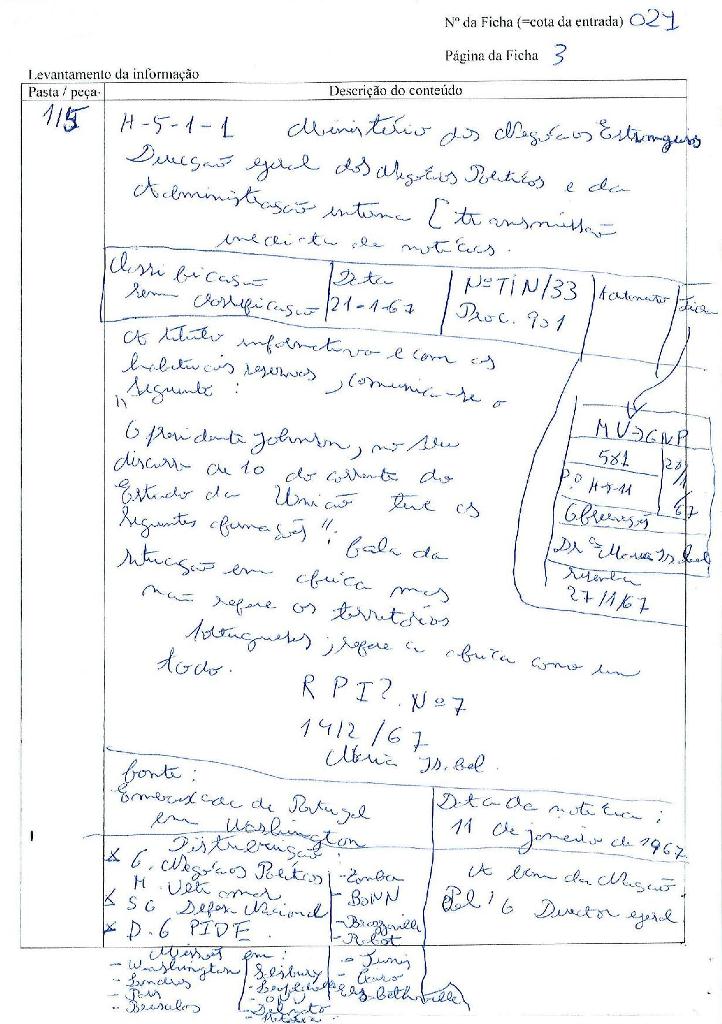 Nº da Ficha (=cota da entrada) 021
Página da Ficha 3
Levantamento da informação
Pasta / peça
Descrição do conteúdo
1/5
H-5-1-1 Ministério dos Negócios Estrangeiros
Direcção geral dos Negócios Políticos e da
Administração interna [transmissão
imediata de notícias.
Classificação
sem classificação
Data
21-1-67
Nº TIN/33
Proc. 901
A título informativo e com as
habituais reservas, comunica-se o
seguinte:
"
O presidente Johnson, no seu
discurso de 10 do corrente do
Estado da União teve as
seguintes afirmações": fala da
situação em africa mas
não refere os territórios
Portugueses; refere a africa como um
todo.
MU→GNP
581
20/1/67
Pº H-5-11
Observações
Drª Maria Isabel
resenha
27/1/67
RPI? Nº7
14/2/67
Maria Isabel
fonte:
Embaixada de Portugal
em Washington
Data da notícia:
11 de janeiro de 1967
Distribuição:
x G. Negócios Políticos
M. Ultramar
x SG Defesa Nacional
x D.G PIDE
- Zomba
- BONN
- Brazzaville
- Rabat
A bem da Nação
Pel' O Director geral
Missões em:
- Washington
- Londres
- Paris
- Bruxelas
- Salisbury
- Leopoldville
- ONU
- Pretória
- Tunis
- Cairo
- Elisabethville